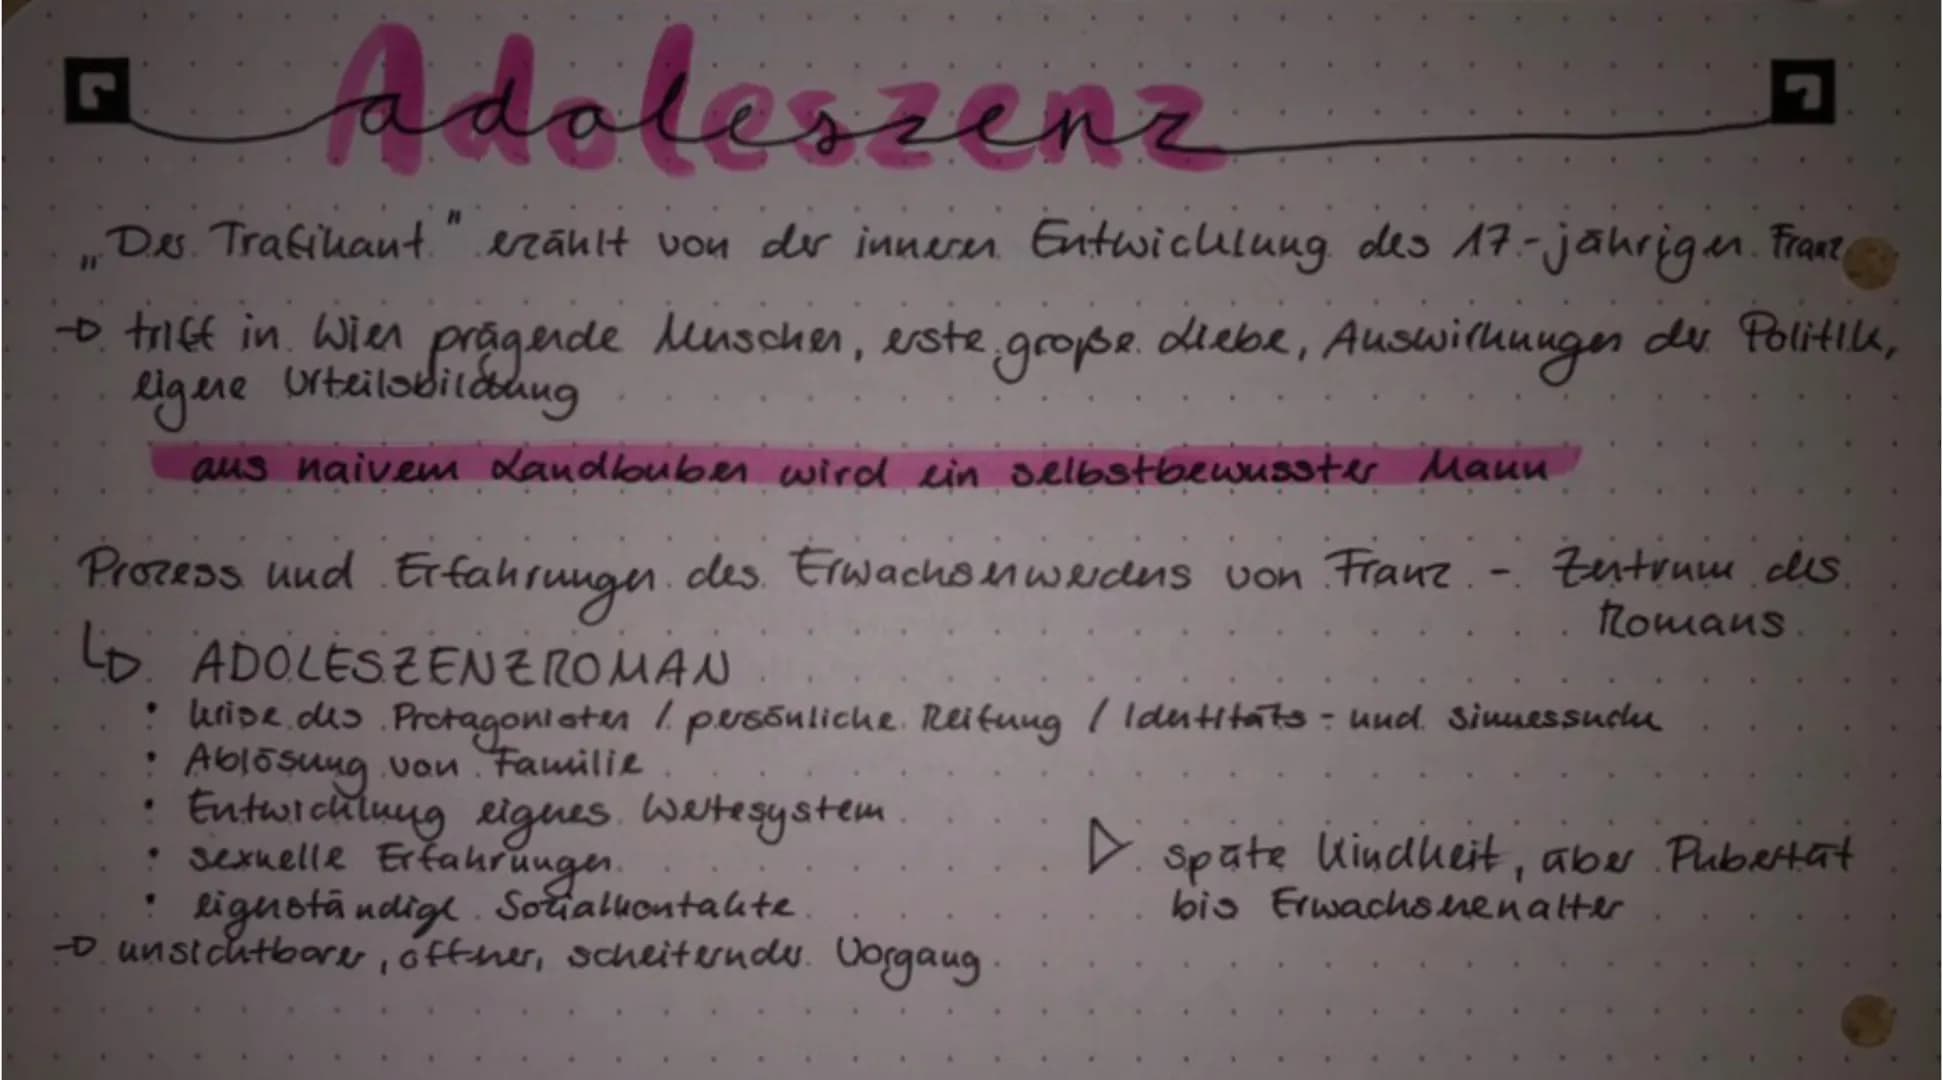 Adoleszenz
„Der Trafikant" erzählt von der inneren Entwicklung des 17-jährigen Franz
→ trifft in Wien prägende Menschen, erste große Liebe, Auswirkungen der Politik,
eigene Urteilsbildung
aus naivem Landbuben wird ein selbstbewusster Mann
Prozess und Erfahrungen des Erwachsenwerdens von Franz - Zentrum des
Romans
↳ ADOLESZENZROMAN
• Krise des Protagonisten / persönliche Reifung / Identitäts- und Sinnessuche
• Ablösung von Familie
• Entwicklung eignes Wertesystem
• sexuelle Erfahrungen
• eigenständige Sozialkontakte
▷ späte Kindheit, aber Pubertät
bis Erwachsenenalter
→ unsichtbarer, offner, scheiternder Vorgang